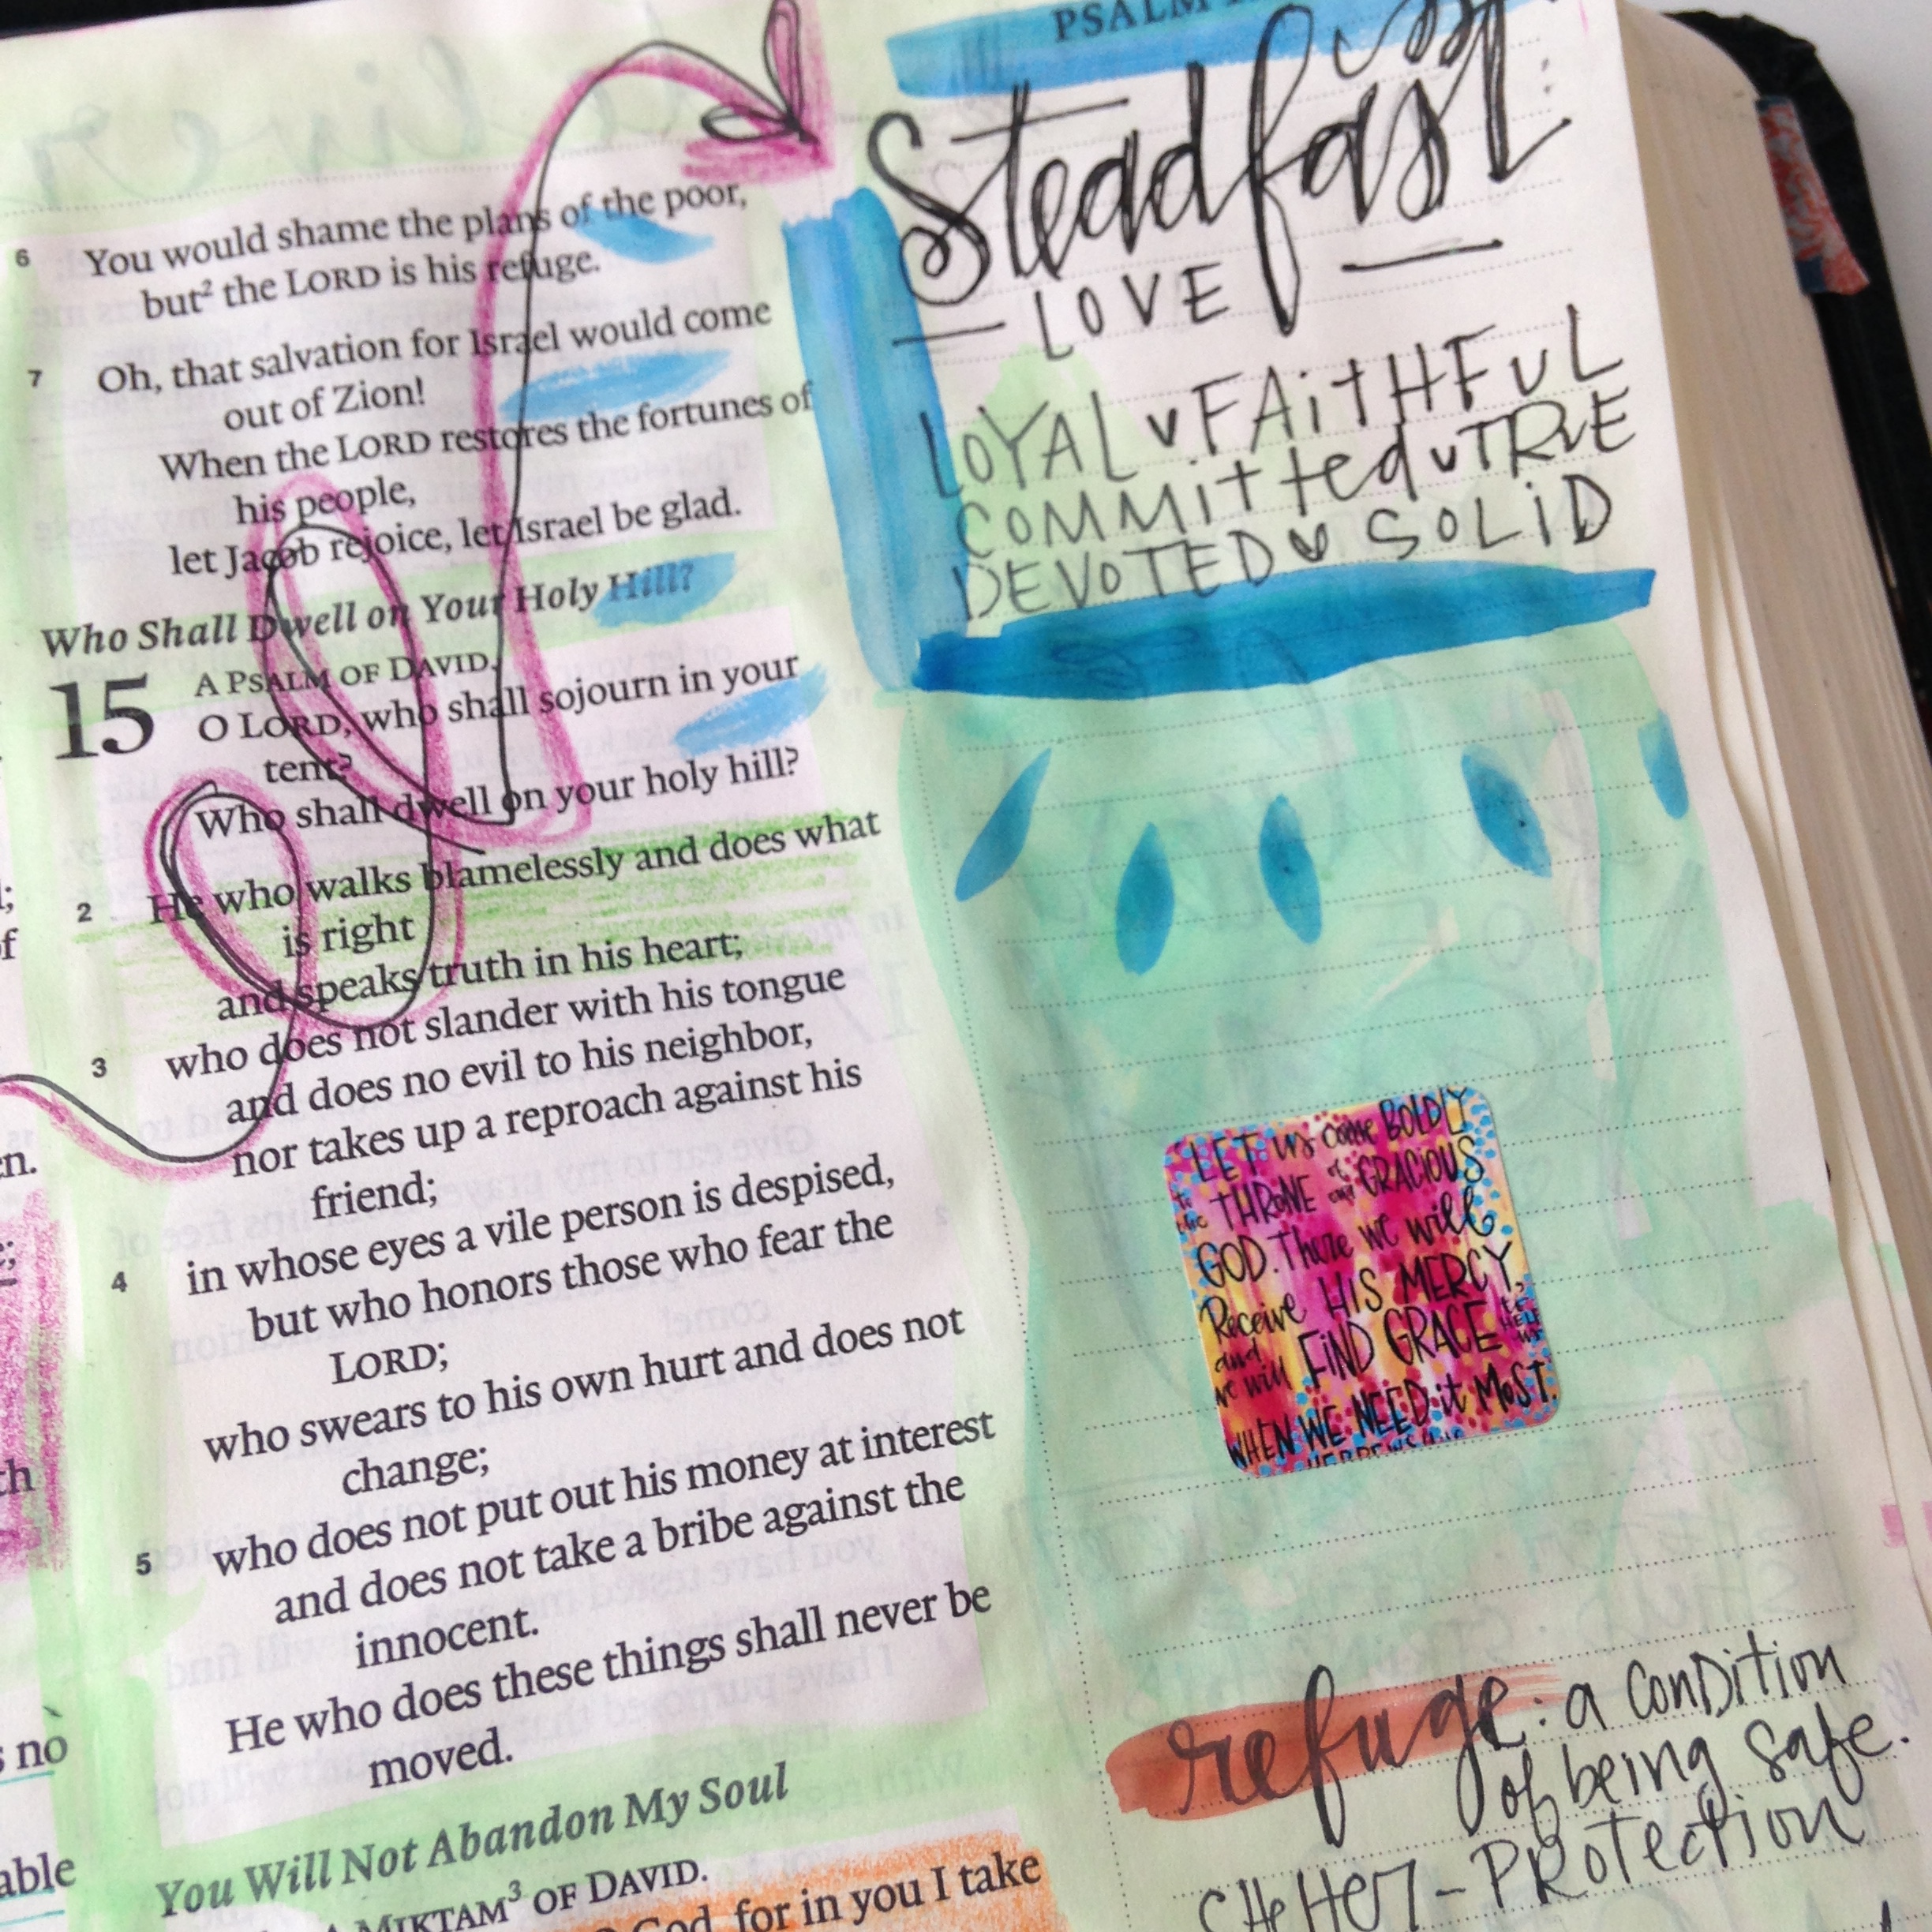 PSALM
6 You would shame the plans of the poor,
but² the LORD is his refuge.
7 Oh, that salvation for Israel would come
out of Zion!
When the LORD restores the fortunes of
his people,
let Jacob rejoice, let Israel be glad.
Who Shall Dwell on Your Holy Hill?
15 A PSALM OF DAVID.
O LORD, who shall sojourn in your
tent?
Who shall dwell on your holy hill?
2 He who walks blamelessly and does what
is right
and speaks truth in his heart;
3 who does not slander with his tongue
and does no evil to his neighbor,
nor takes up a reproach against his
friend;
4 in whose eyes a vile person is despised,
but who honors those who fear the
LORD;
who swears to his own hurt and does not
change;
5 who does not put out his money at interest
and does not take a bribe against the
innocent.
He who does these things shall never be
moved.
You Will Not Abandon My Soul
MIKTAM³ OF DAVID.
God, for in you I take
Steadfast
LOVE
LOYAL FAiTHFUL
COMMitted TRUE
DEVOTED SOLiD
LET us come BOLDLY
to the THRONE of our GRACIOUS
GOD. There we will
Receive HIS MERCY,
and we will FiND GRACE to HELP us
WHEN WE NEED it MOST.
refuge: a condition
of being safe.
SHelter - PROtection
of
en.
th
s no
able